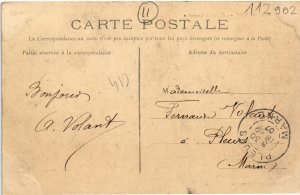 112902
11
CARTE POSTALE
La Correspondance au recto n'est pas acceptée par tous les pays étrangers (se renseigner à la Poste)
Partie réservée à la correspondance
Adresse du destinataire
410
Bonjour
A. Volant
Mademoiselle
Fernande Volant
à Pleurs
(Marne)
PLEURS
MARNE